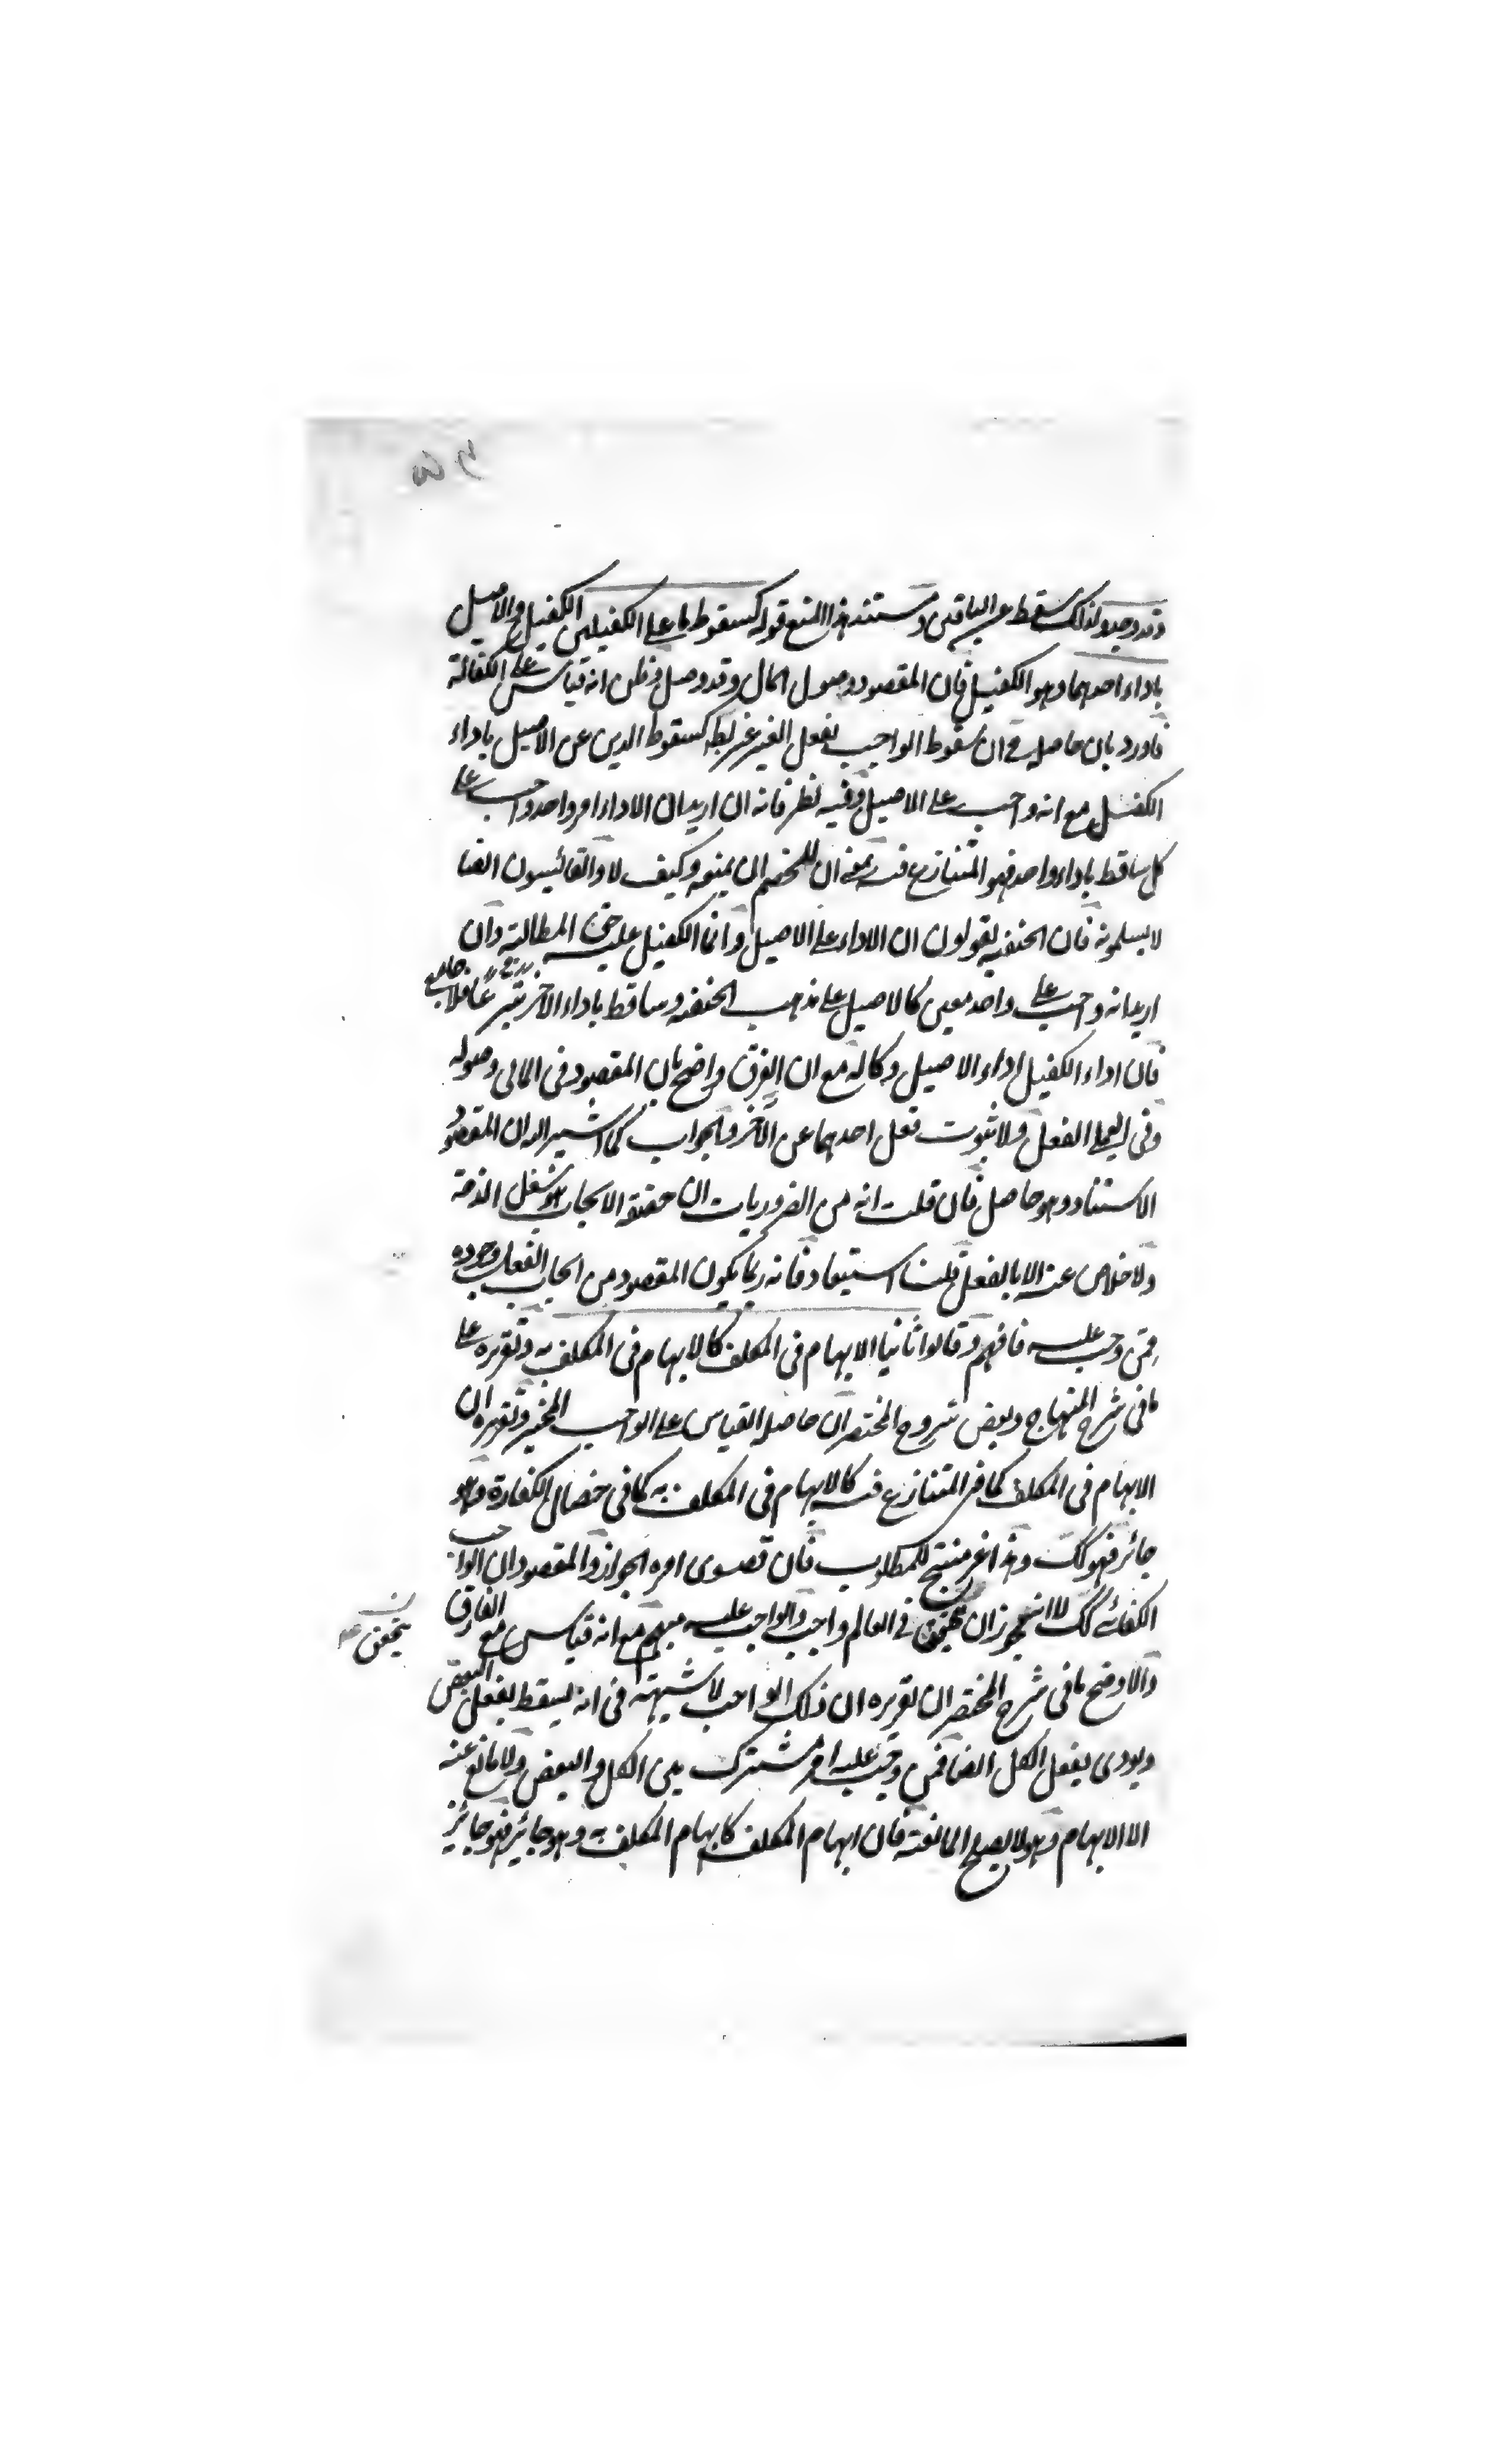 وقد وجد ولذلك سقط عن الباقين ومستند هذا المنع قوله كسقوط ما على الكفيلين الكفيل والاصيل
باداء احدهما وهو الكفيل فان المقصود وصول المال وقد وصل وظن انه قياس على الكفالة
فاورد بان حاصله ان سقوط الواجب بفعل الغير غير كسقوط الدين عن الاصيل باداء
الكفيل مع انه واجب على الاصيل وفيه نظر فانه ان اريد ان الاداء امر واحد واجب على
كل ساقط باداء واحد فهو المتنازع فيه بمعنى ان للخصم ان يمنعه وكيف لا والقائسون ايضا
لا يسلمونه فان الحنفية يقولون ان الاداء على الاصيل وانما الكفيل عليه حق المطالبة وان
اريد انه واجب على واحد معين كالاصيل على مذهب الحنفية وساقط باداء الاخر
فان اداء الكفيل اداء الاصيل وكالة مع ان الفرق واضح بان المقصود في المالي وصوله
وفي العملي الفعل ولا ثبوت فعل احدهما عن الآخر والجواب كما اشير اليه ان المقصود
الاستناد وهو حاصل فان قلت انه من الضروريات ان حقيقة الايجاب هو شغل الذمة
ولا خلاص عنه الا بالفعل قلنا استبعاد فانه ربما يكون المقصود من ايجاب الفعل وجوده
فمن وجب عليه فافهم وقالوا ثانيا الابهام في المكلف كالابهام في المكلف به وتقريره على
ما في شرح المنهاج وبعض شروح المختصر ان حاصله القياس على الواجب المخير وتقريره ان
الابهام في المكلف كما في المتنازع فيه كالابهام في المكلف به كما في خصال الكفارة وهو
جائز فهو كك وهذا غير منتج للمطلوب فان قصوى امره الجواز والمقصود ان الواجب
الكفائي كك لا انه يجوز ان يتحقق في العالم واجب والواجب عليه مبهم مع انه قياس مع الفارق
يتحقق
والاوضح ما في شرح المختصر ان تقريره ان ذلك الواجب لا شبهة في انه يسقط بفعل البعض
ويودى بفعل الكل ايضا فمن وجب عليه امر مشترك بين الكل والبعض ولا مانع عنه
الا الابهام وهو لا يصلح المانعة فان ابهام المكلف كابهام المكلف به وهو جائز فهو جائز